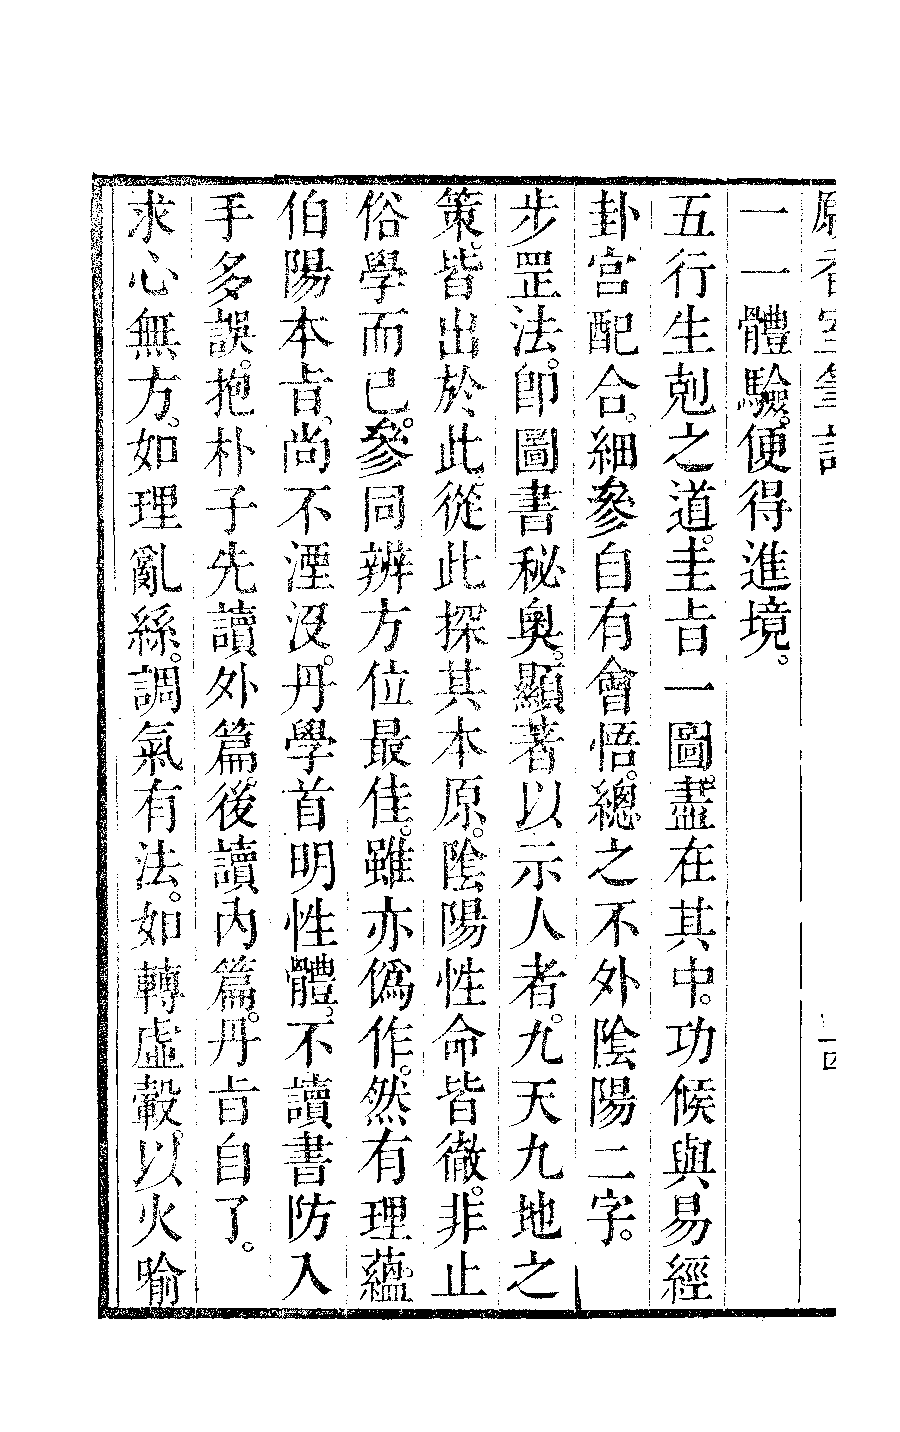 一一體驗。便得進境。
五行生剋之道。圭㫖一圖。盡在其中。功候與易經
卦宮配合。細參自有會悟。總之不外陰陽二字。
步罡法。卽圖書秘奧。顯著以示人者。九天九地之
策。皆出於此。從此探其本原。陰陽性命皆徹。非止
俗學而已。參同辨方位最佳。雖亦僞作。然有理蘊
伯陽本㫖。尚不湮沒。丹學首明性體。不讀書防入
手多誤。抱朴子先讀外篇。後讀內篇。丹㫖自了。
求心無方。如理亂絲。調氣有法。如轉虛轂。以火喻